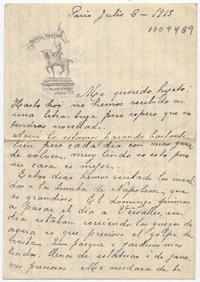 Paris Julio 6 - 1913
1009489
Mi querido hijito:
Hasta hoy no hemos recibido ni
una letra tuya pero espero que no
tendras novedad.
Aqui lo estamos pasando bastante
bien pero cada dia con mas ganas
de volver, muy lindo es esto pero
su casa es mejor.
Estos dias hemos visitado los invali
dos la tumba de Napoleon, que
es grandioso. El domingo fuimos
a pasar el dia a Versalles, ese
dia estaban corriendo los juegos de
agua es que precioso el golpe de
vista. Un parque y jardines mas
lindos, llenos de estatuas i de jarro
nes preciosos. Me acordaba de ti